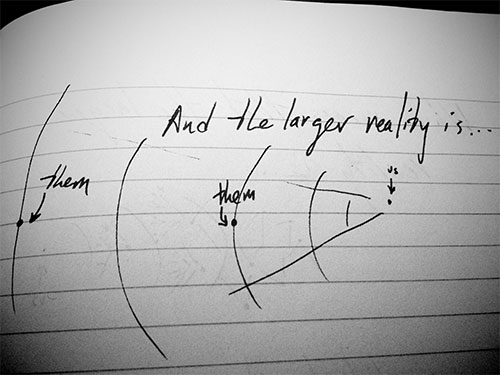 And the larger reality is...
us
them
them